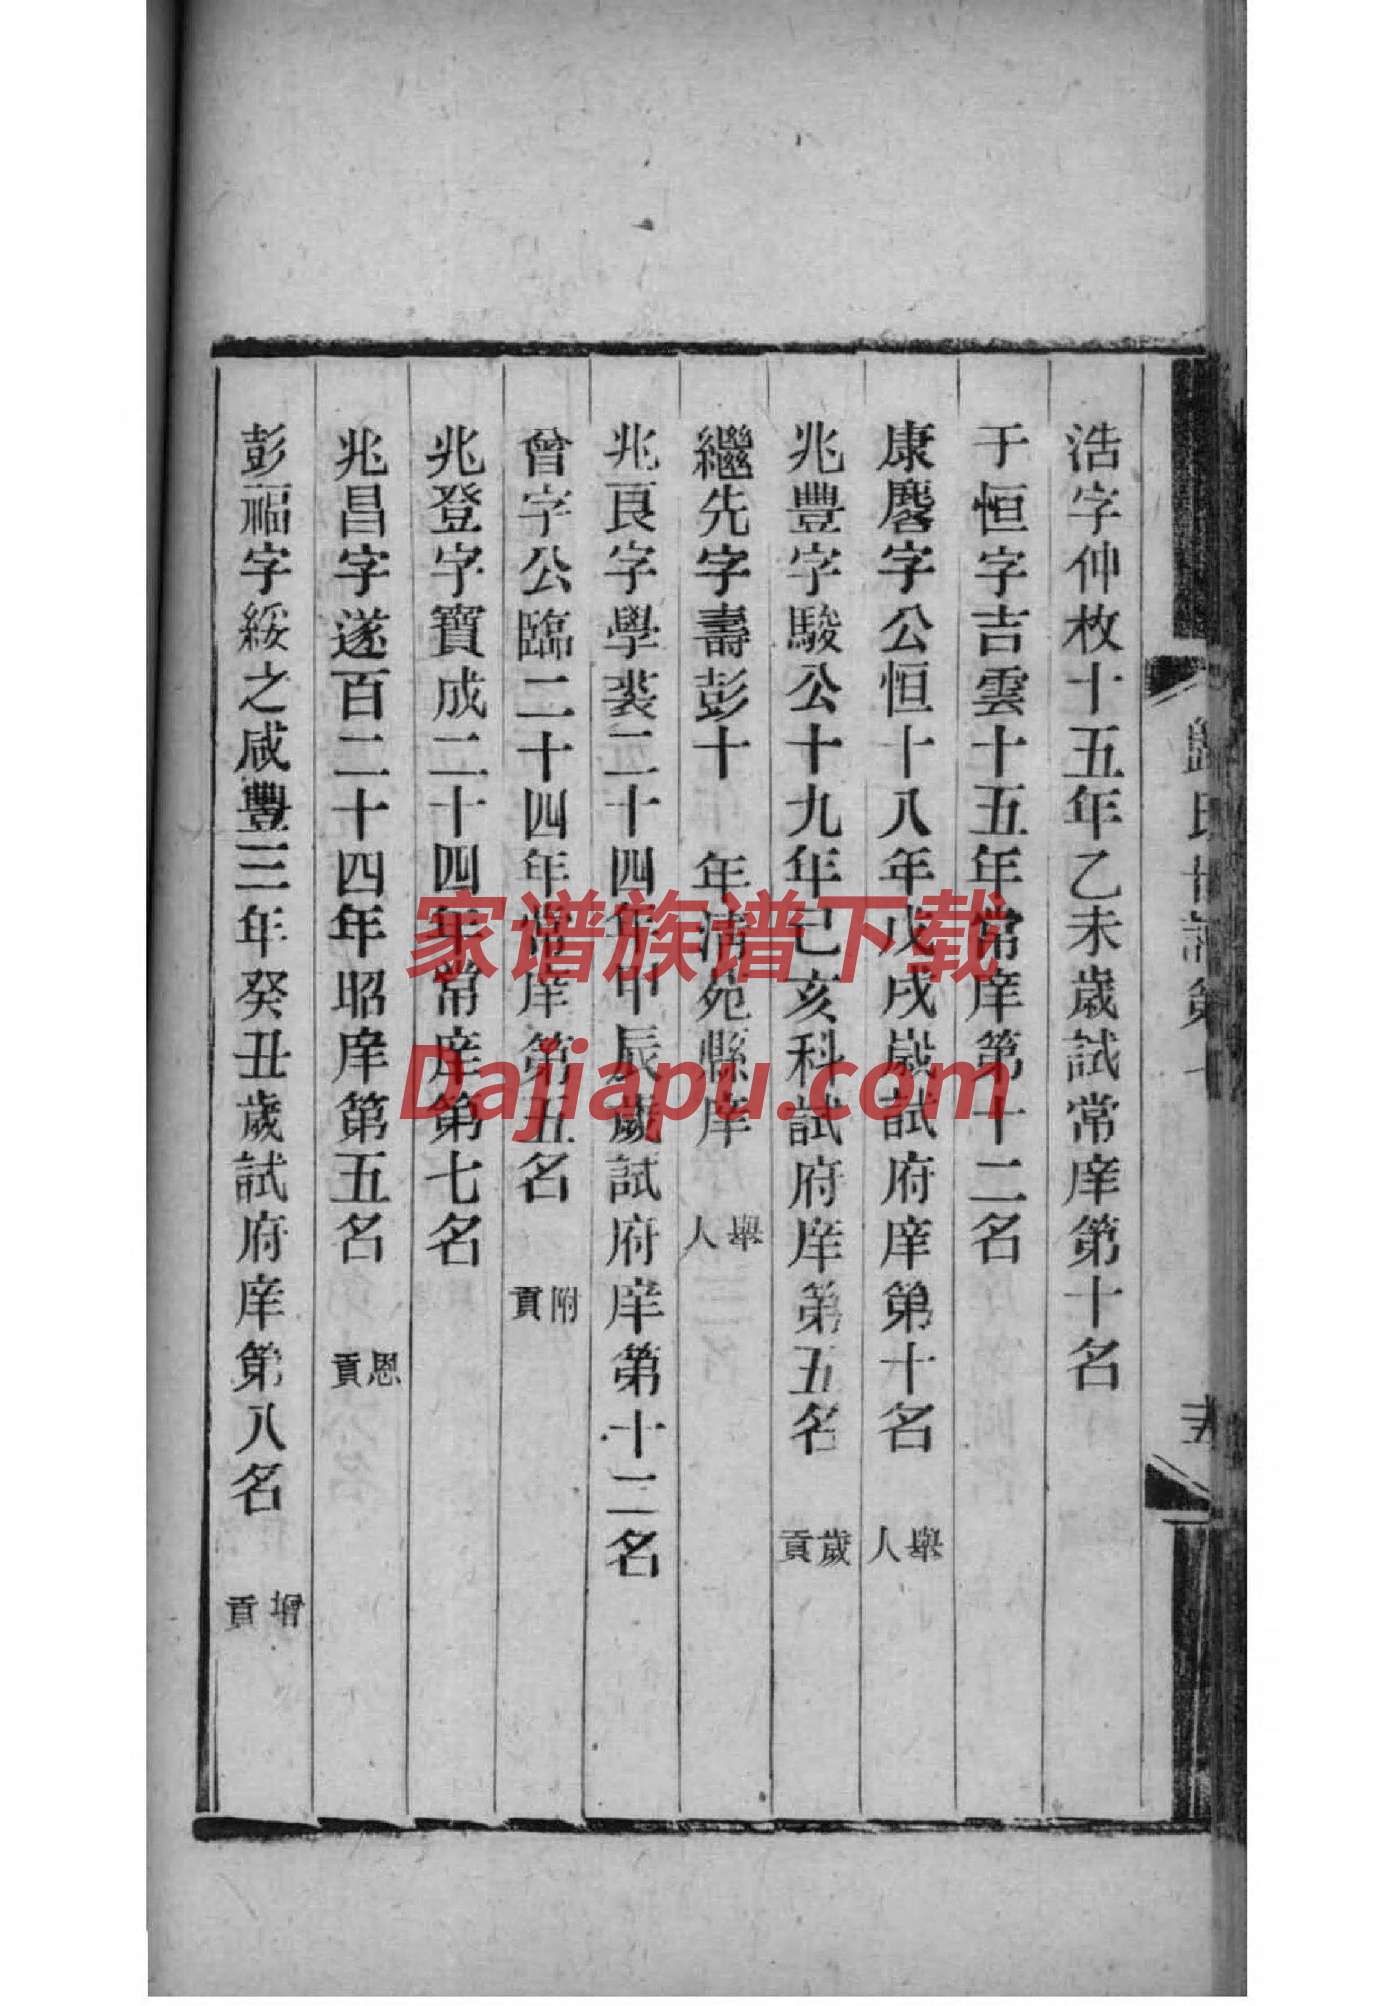 浩字仲枚十五年乙未歲試常庠第十名
于恒字吉雲十五年常庠第十二名
康麐字公恒十八年戊戌歲試府庠第十名 舉人
兆豐字駿公十九年己亥科試府庠第五名 歲貢
繼先字壽彭十 年清苑縣庠 舉人
兆良字學裘二十四年甲辰歲試府庠第十二名
曾字公臨二十四年常庠第五名 附貢
兆登字寶成二十四年常庠第七名
兆昌字遂百二十四年昭庠第五名 恩貢
彭福字綏之咸豐三年癸丑歲試府庠第八名 增貢
家谱族谱下载
Dajiapu.com